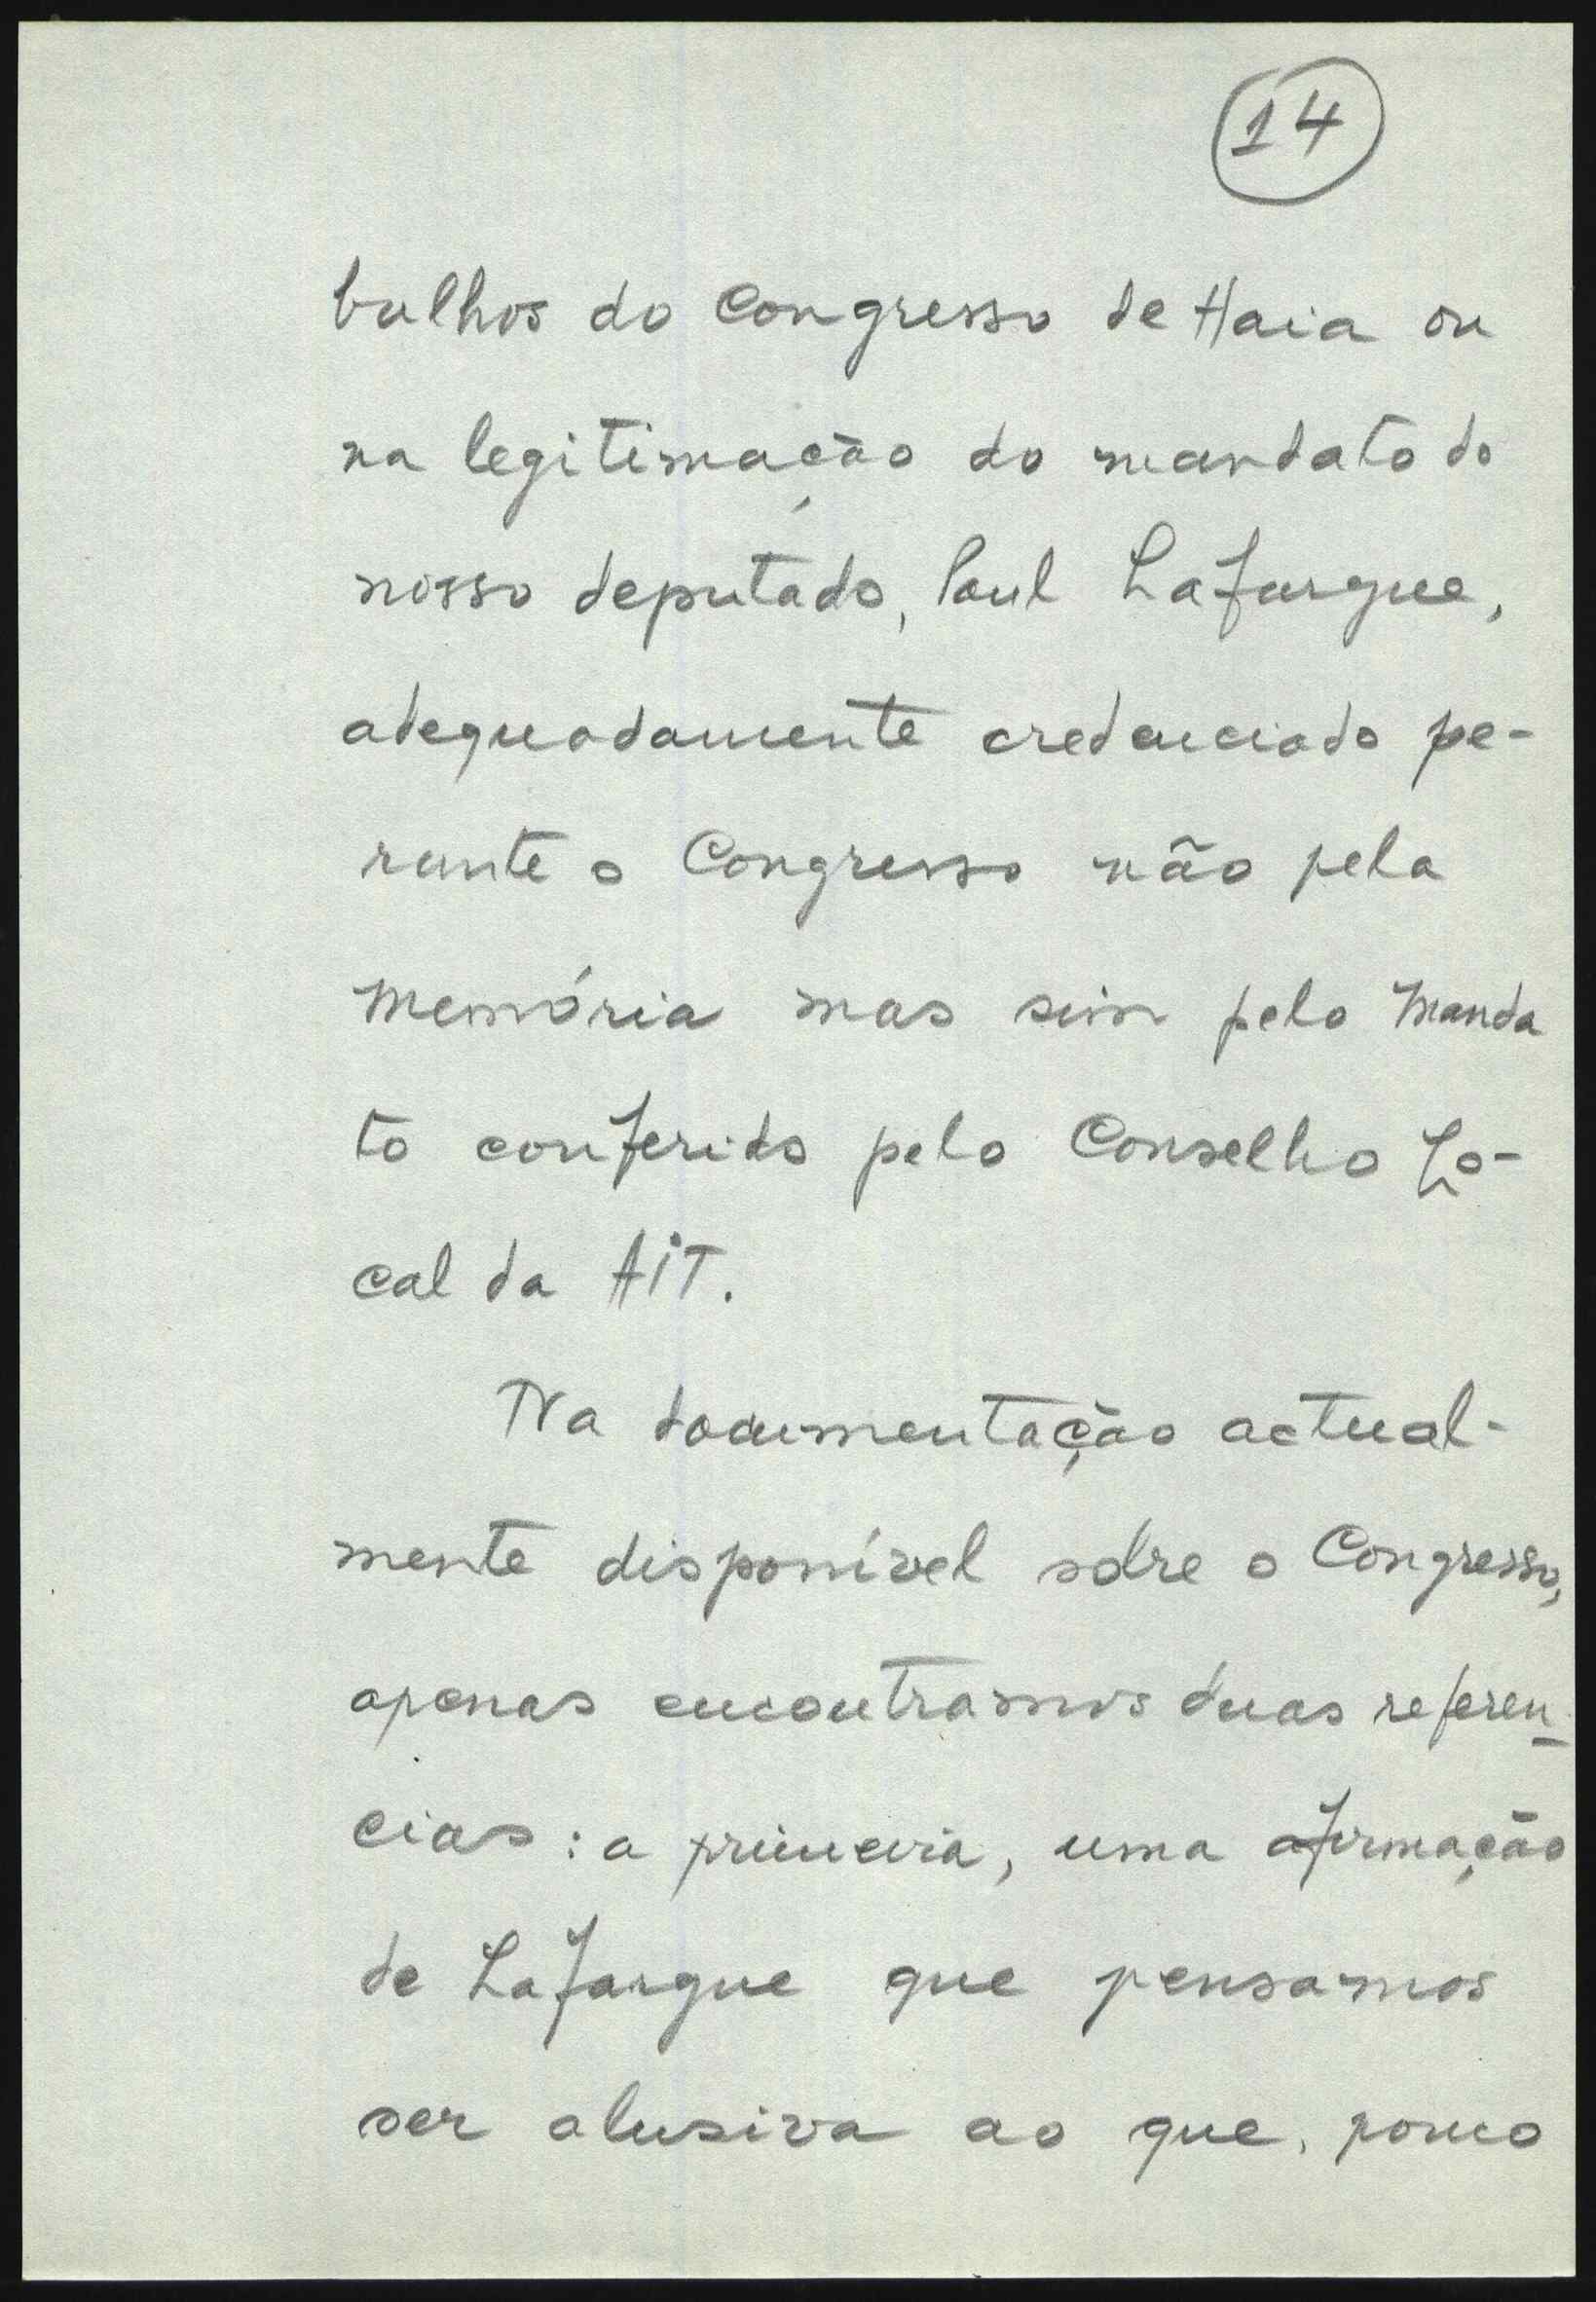 14
balhos do Congresso de Haia ou
na legitimação do mandato do
nosso deputado, Paul Lafargue,
adequadamente credenciado pe-
rante o Congresso não pela
Memória mas sim pelo Manda
to conferido pelo Conselho Lo-
cal da AIT.
Na documentação actual-
mente disponível sôbre o Congresso,
apenas encontramos duas referen
cias: a primeira, uma afirmação
de Lafargue que pensamos
ser alusiva ao que, pouco